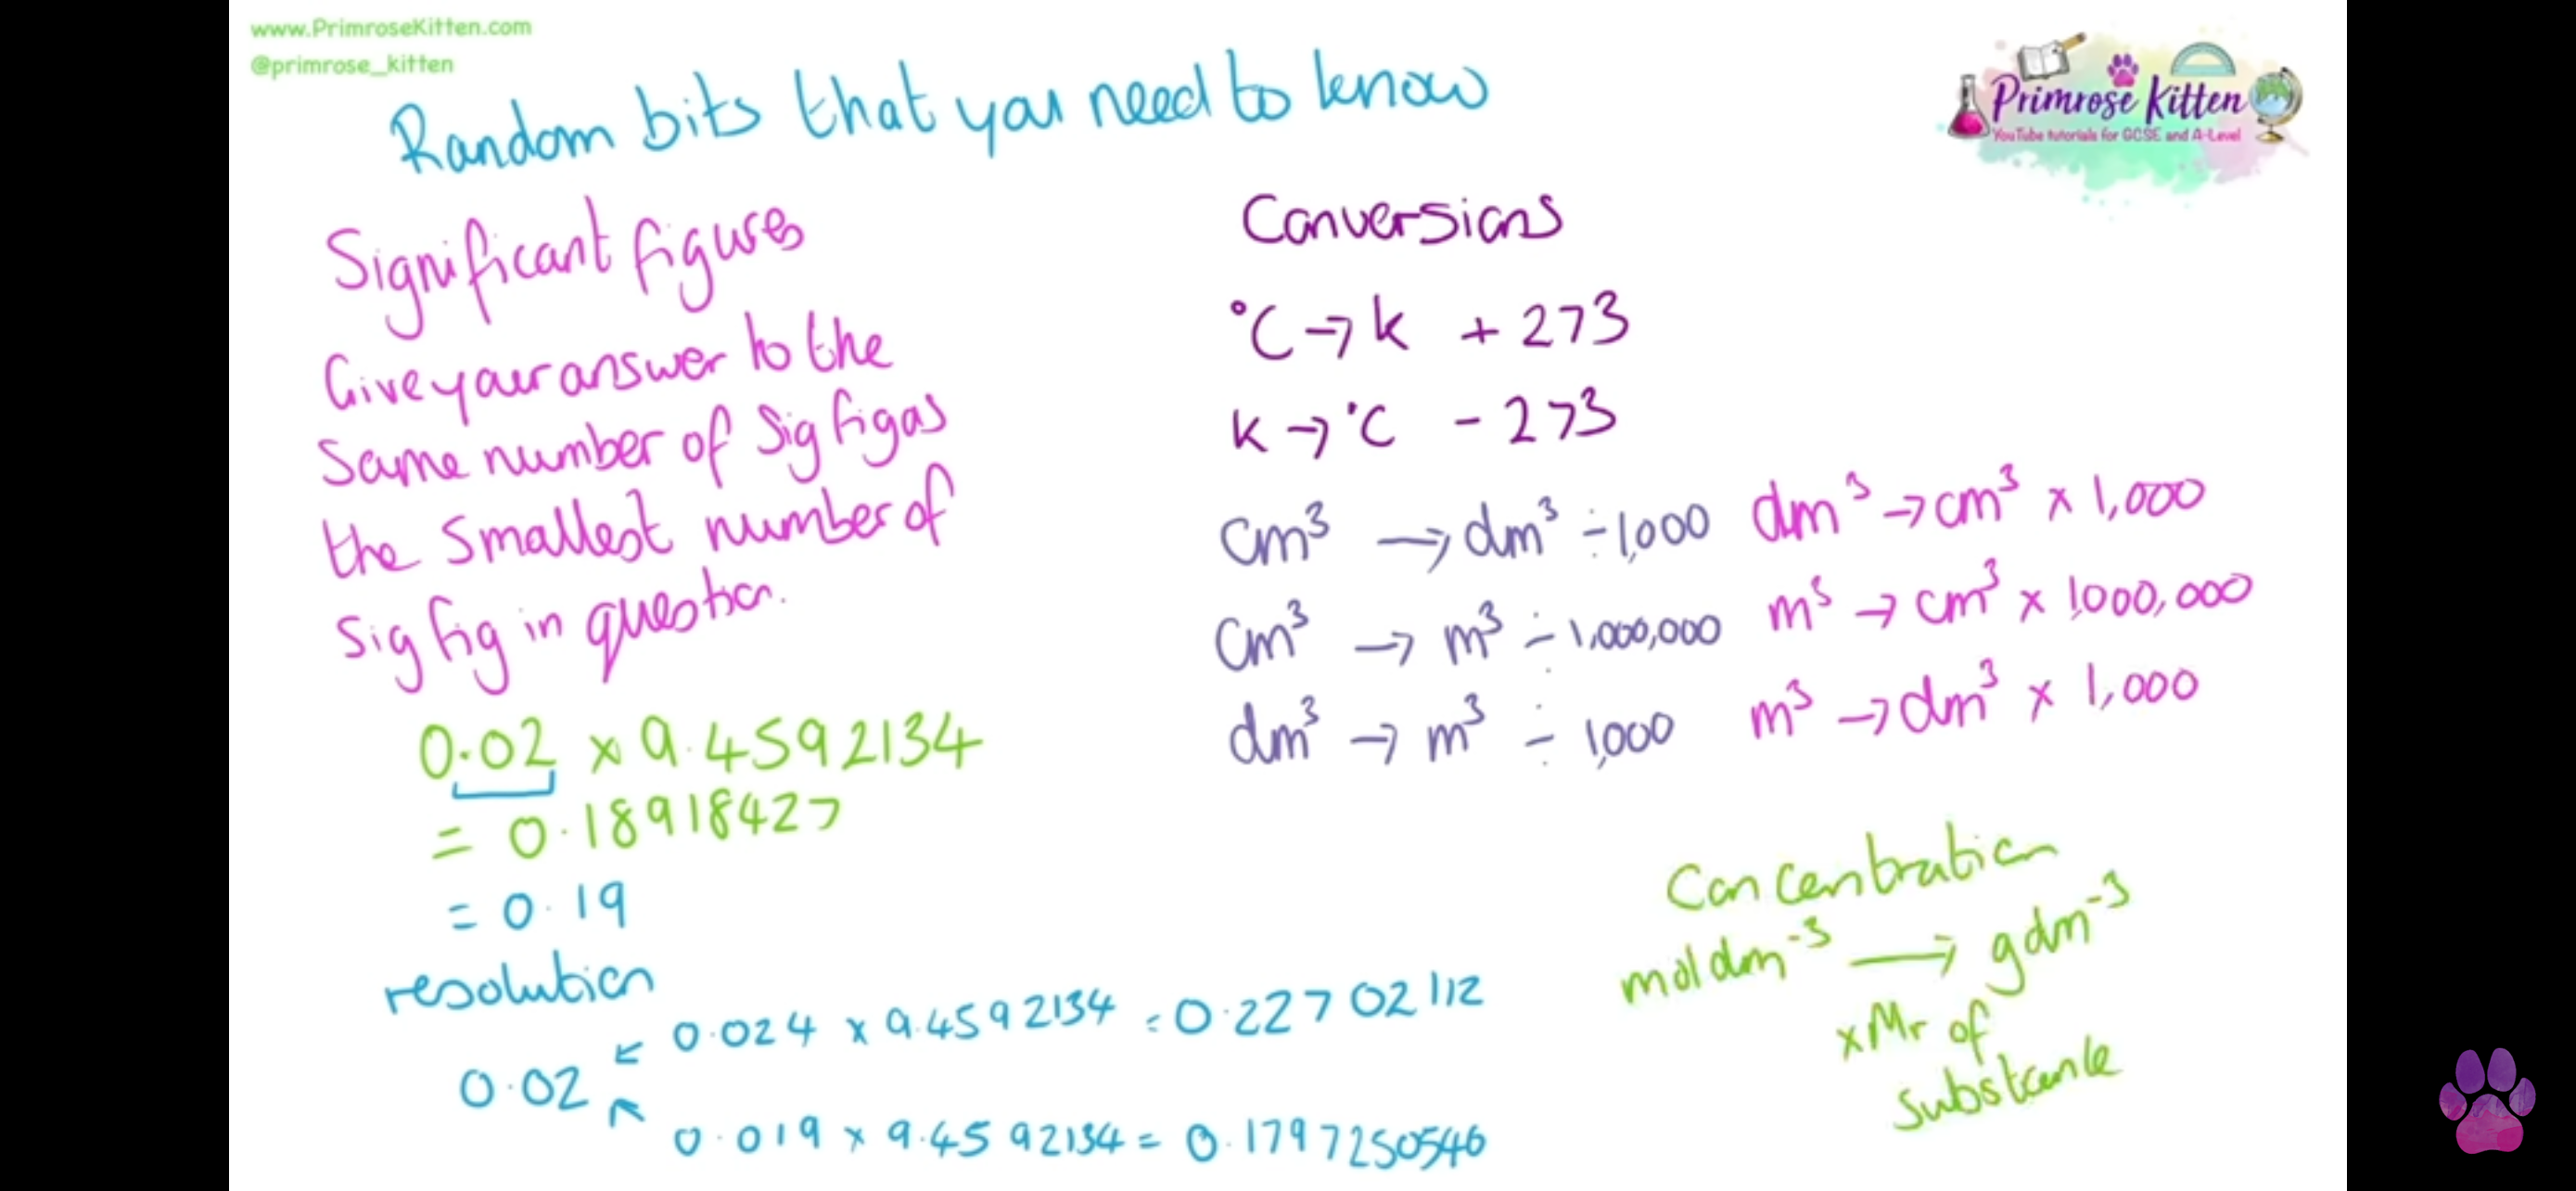 www.PrimroseKitten.com
@primrose_kitten
Random bits that you need to know
Primrose Kitten
YouTube tutorials for GCSE and A-Level
Significant figures
Give your answer to the
Same number of Sig fig as
the Smallest number of
Sig fig in question.
0.02 × 9.4592134
= 0.18918427
= 0.19
resolution
0.02
0.024 × 9.4592134 = 0.22702112
0.019 × 9.4592134 = 0.1797250546
Conversions
°C → K + 273
K → °C - 273
cm³ → dm³ ÷ 1,000 dm³ → cm³ × 1,000
cm³ → m³ ÷ 1,000,000 m³ → cm³ × 1,000,000
dm³ → m³ ÷ 1,000 m³ → dm³ × 1,000
Concentration
mol dm⁻³ → g dm⁻³
× Mr of
Substance